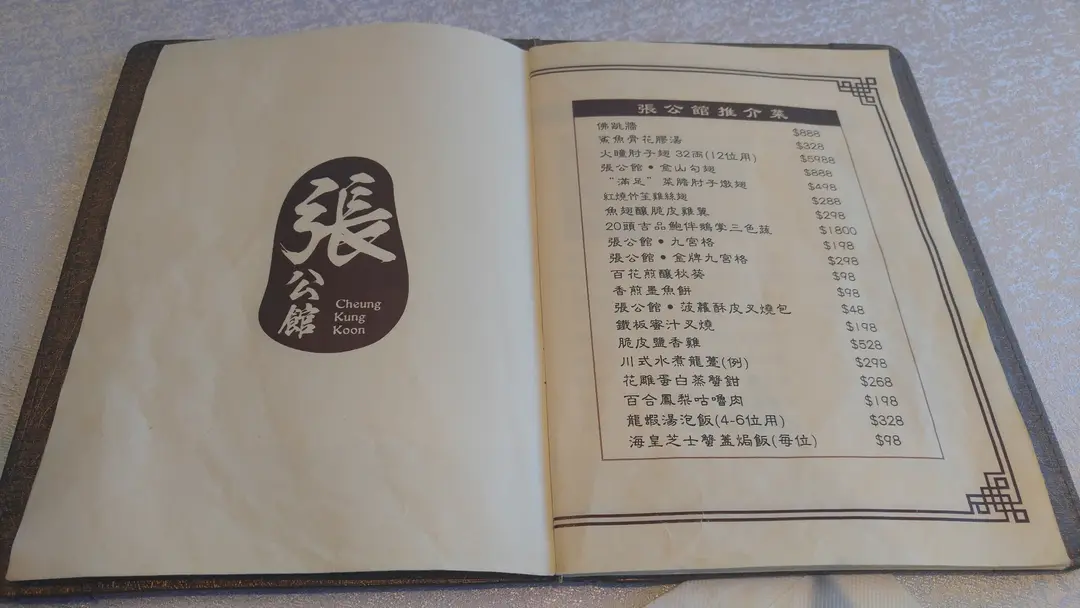 張
公
館
Cheung
Kung
Koon
張公館推介菜
佛跳牆 $888
鯊魚骨花膠湯 $328
火瞳肘子翅 32両(12位用) $5988
張公館•金山勾翅 $888
“滿足”菜膽肘子燉翅 $498
紅燒竹笙雞絲翅 $288
魚翅釀脆皮雞翼 $298
20頭古品鮑伴鵝掌三色蔬 $1800
張公館•九宮格 $198
張公館•金牌九宮格 $298
百花煎釀秋葵 $98
香煎墨魚餅 $98
張公館•菠蘿酥皮叉燒包 $48
鐵板蜜汁叉燒 $198
脆皮鹽香雞 $528
川式水煮龍躉(例) $298
花雕蛋白蒸蟹鉗 $268
百合鳳梨咕嚕肉 $198
龍蝦湯泡飯(4-6位用) $328
海皇芝士蟹蓋焗飯(每位) $98